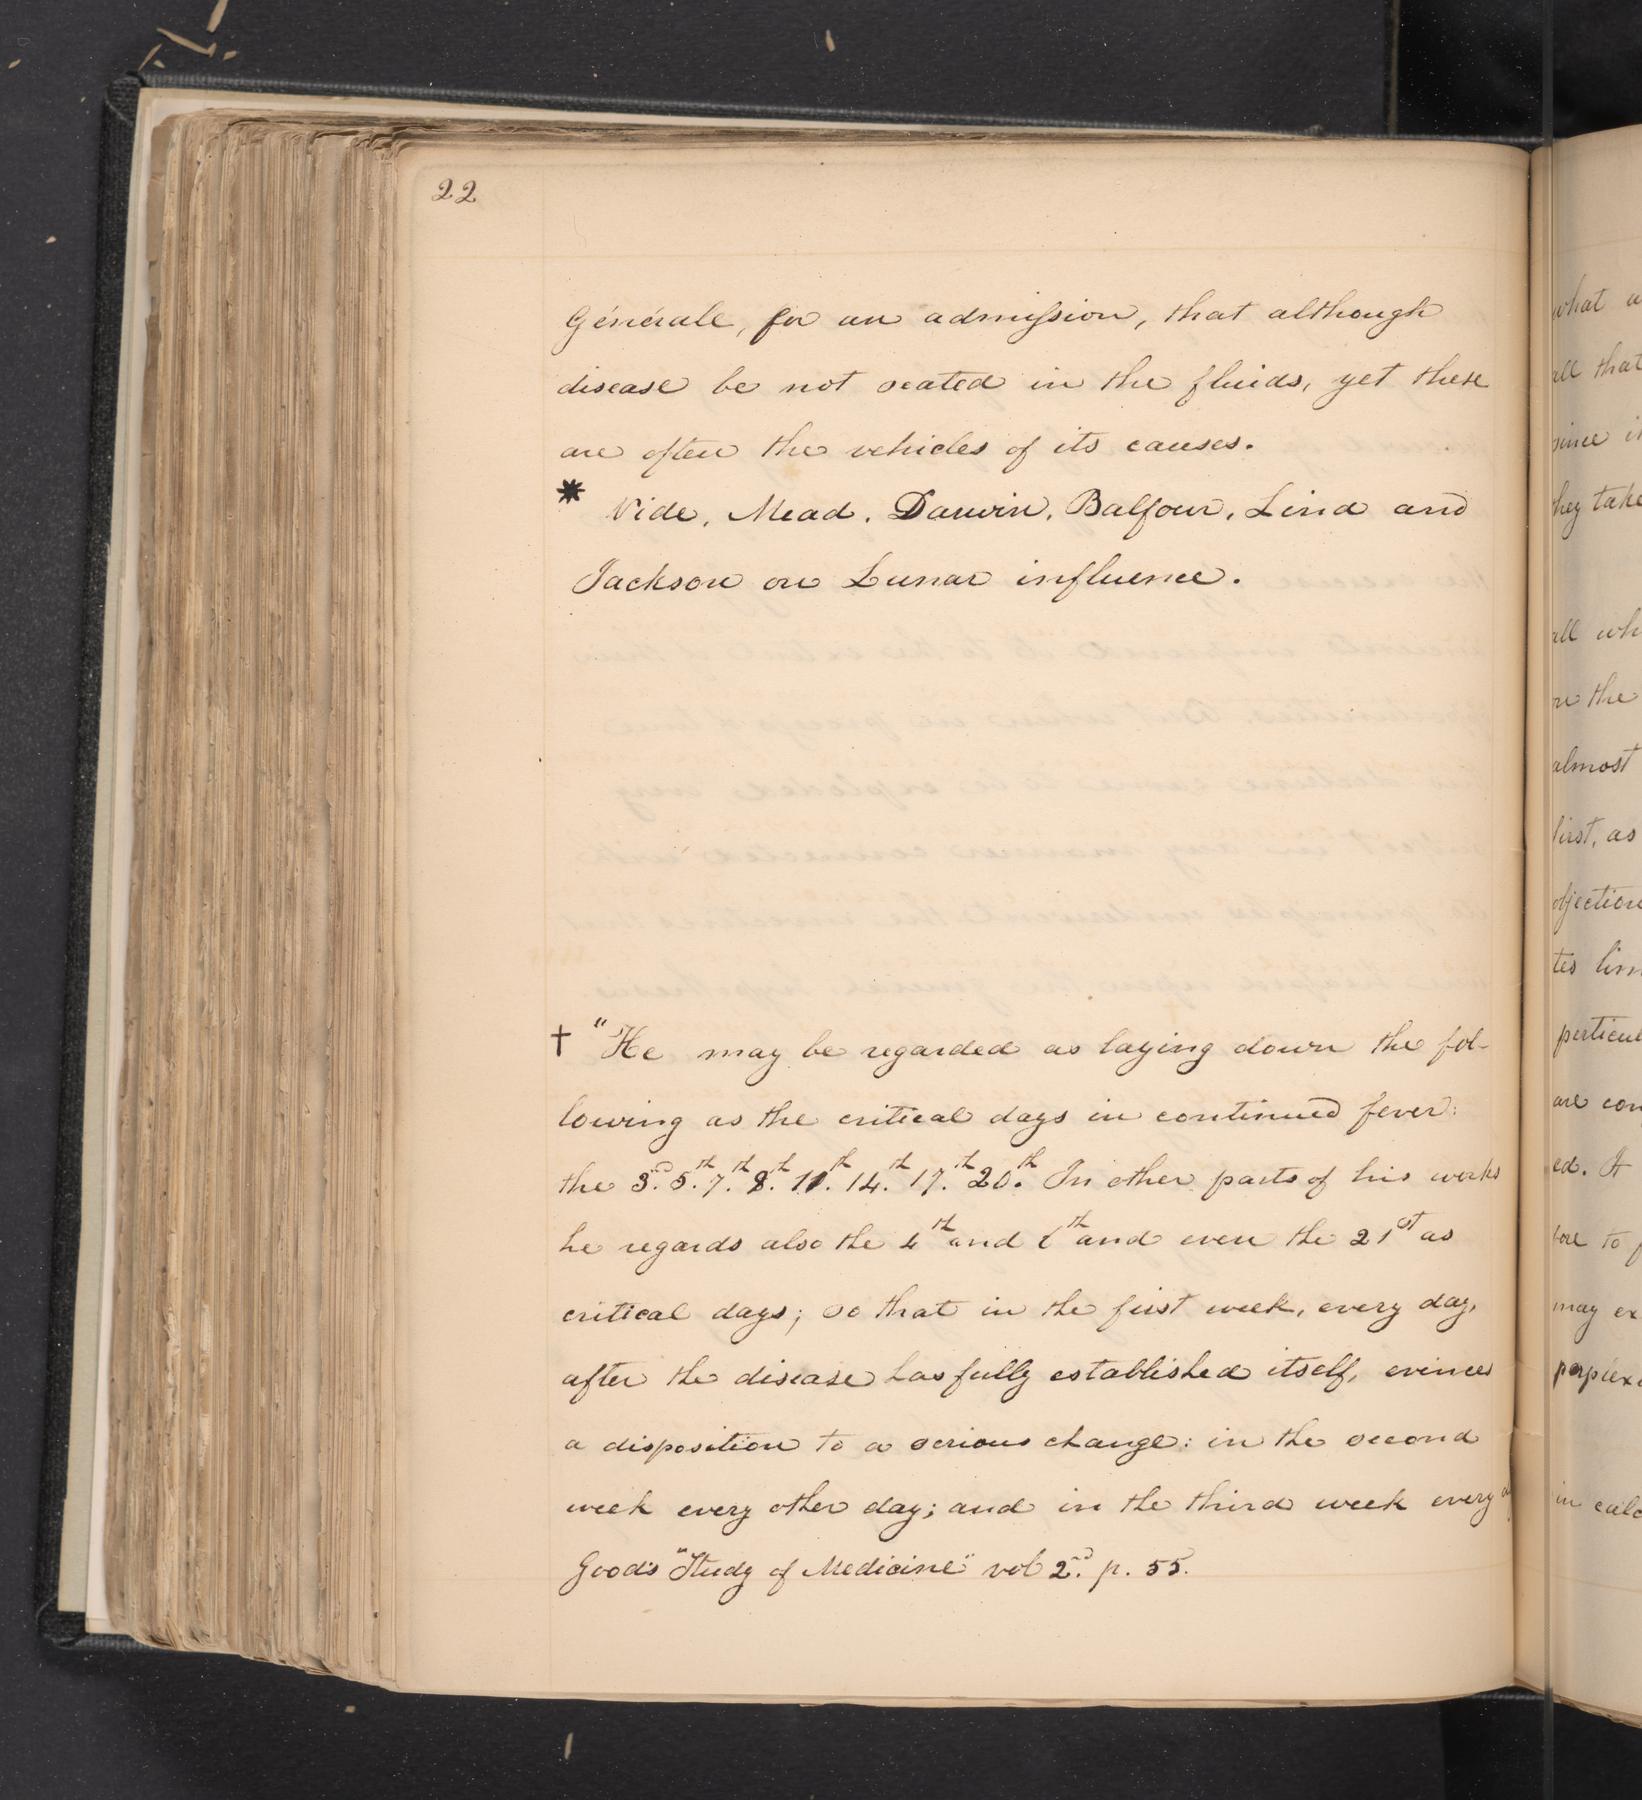 22
Générale, for an admission, that although
disease be not seated in the fluids, yet these
are often the vehicles of its causes.
* Vide, Mead. Darwin, Balfour, Lind and
Jackson on Lunar influence.
† "He may be regarded as laying down the fol-
lowing as the critical days in continued fever:
the 3.rd 5.th 7.th 8.th 11.th 14.th 17.th 20.th In other parts of his works
he regards also the 4th and 6th and even the 21st as
critical days; so that in the first week, every day,
after the disease has fully established itself, evinces
a disposition to a serious change: in the second
week every other day; and in the third week every
Good's "Study of Medicine" vol 2.nd p. 55.
what
all that
since
they take
all
the
almost
first, as
objection
tes
are
ed. It
to
may
in